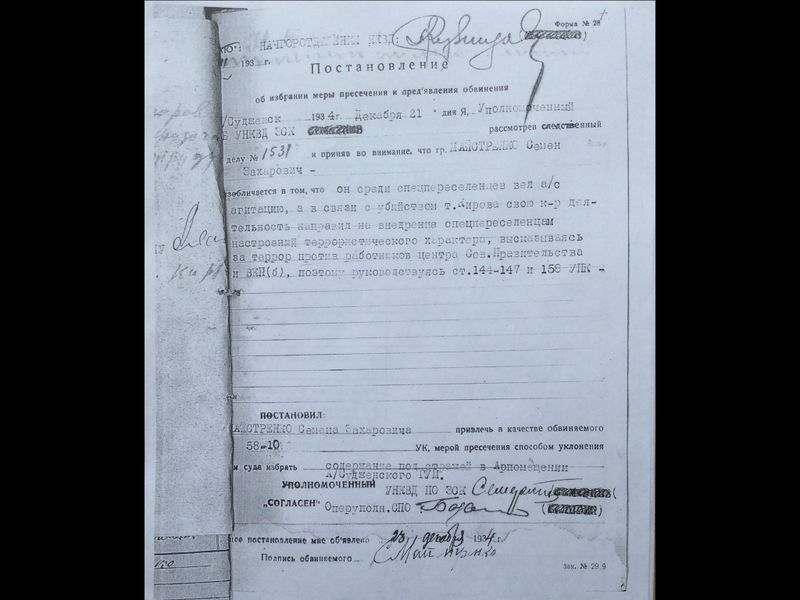 Форма № 28
НАЧГОРОТДЕЛЕНИЯ НКВД:
193 г.
Постановление
об избрании меры пресечения и пред'явления обвинения
/Судженск 1934г. Декабря 21 дня Я, Уполномоченный
УНКВД ЗСК рассмотрев следственный
делу № 1531 и приняв во внимание, что гр. МАЙСТРЕНКО Семен
Захарович -
изобличается в том, что он среди спецпереселенцев вел а/с
агитацию, а в связи с убийством т.Кирова свою к-р дея-
тельность направил на внедрение спецпереселенцам
настроений террористического характера, высказываясь
за террор против работников центра Сов.Правительства
и ВКП(б), поэтому руководствуясь ст.144-147 и 158 УПК -
ПОСТАНОВИЛ:
МАЙСТРЕНКО Семена Захаровича привлечь в качестве обвиняемого
58-10 УК, мерой пресечения способом уклонения
и суда избрать содержание под стражей в Арпомещении
А/Судженского
УПОЛНОМОЧЕННЫЙ УНКВД ПО ЗСК
„СОГЛАСЕН“ Оперуполн.СПО
постановление мне об'явлено 23 декабря 1934 г.
Подпись обвиняемого
зак. № 29.9